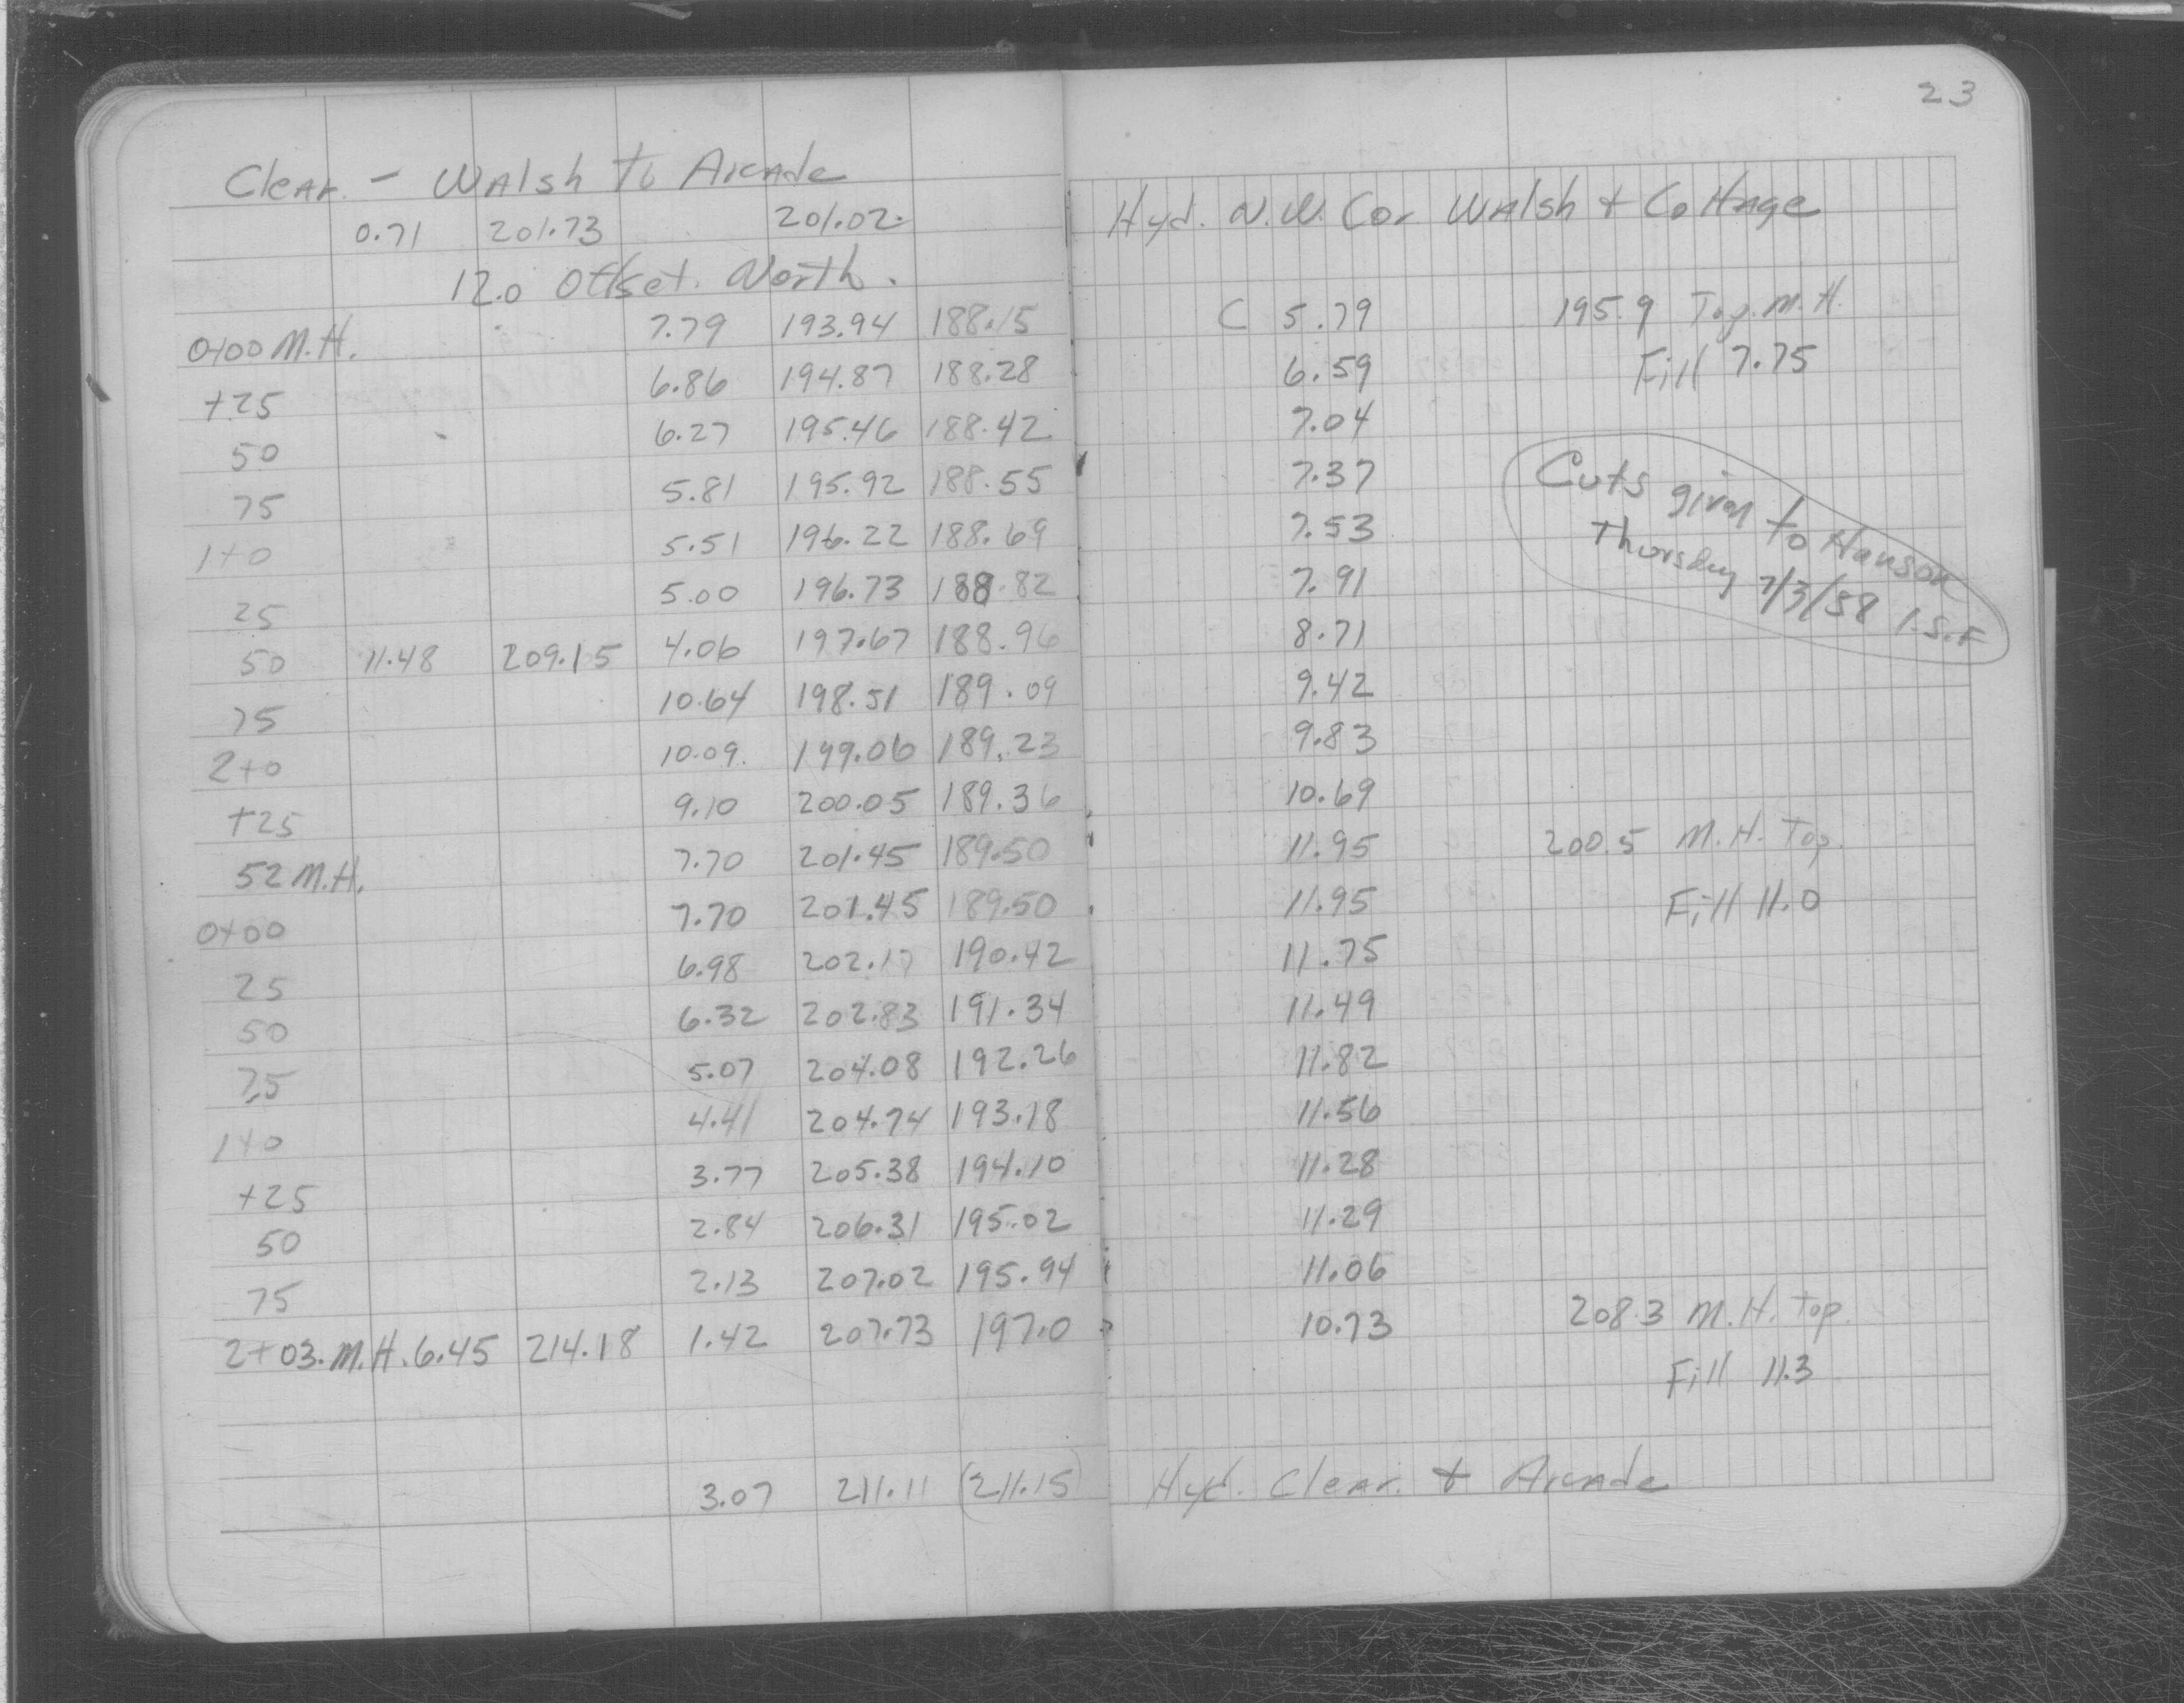 23
Clear. - Walsh to Arcade
0.71 201.73 201.02 Hyd. N.W. Cor Walsh + Cottage
12.0 Offset. North.
0+00 M.H. 7.79 193.94 188.15 C 5.79 195.9 Top. M.H.
+25 6.86 194.87 188.28 6.59 Fill 7.75
50 6.27 195.46 188.42 7.04
75 5.81 195.92 188.55 7.37
1+0 5.51 196.22 188.69 7.53
25 5.00 196.73 188.82 7.91
50 11.48 209.15 4.06 197.67 188.96 8.71
75 10.64 198.51 189.09 9.42
2+0 10.09. 199.06 189.23 9.83
+25 9.10 200.05 189.36 10.69
52 M.H. 7.70 201.45 189.50 11.95 200.5 M.H. Top.
0+00 7.70 201.45 189.50 11.95 Fill 11.0
25 6.98 202.17 190.42 11.75
50 6.32 202.83 191.34 11.49
75 5.07 204.08 192.26 11.82
1+0 4.41 204.74 193.18 11.56
+25 3.77 205.38 194.10 11.28
50 2.84 206.31 195.02 11.29
75 2.13 207.02 195.94 11.06
2+03. M.H. 6.45 214.18 1.42 207.73 197.0 10.73 208.3 M.H. Top.
Fill 11.3
3.07 211.11 (211.15) Hyd. Clear. + Arcade
Cuts given to Hanson
Thursday 7/3/58 I.S.F